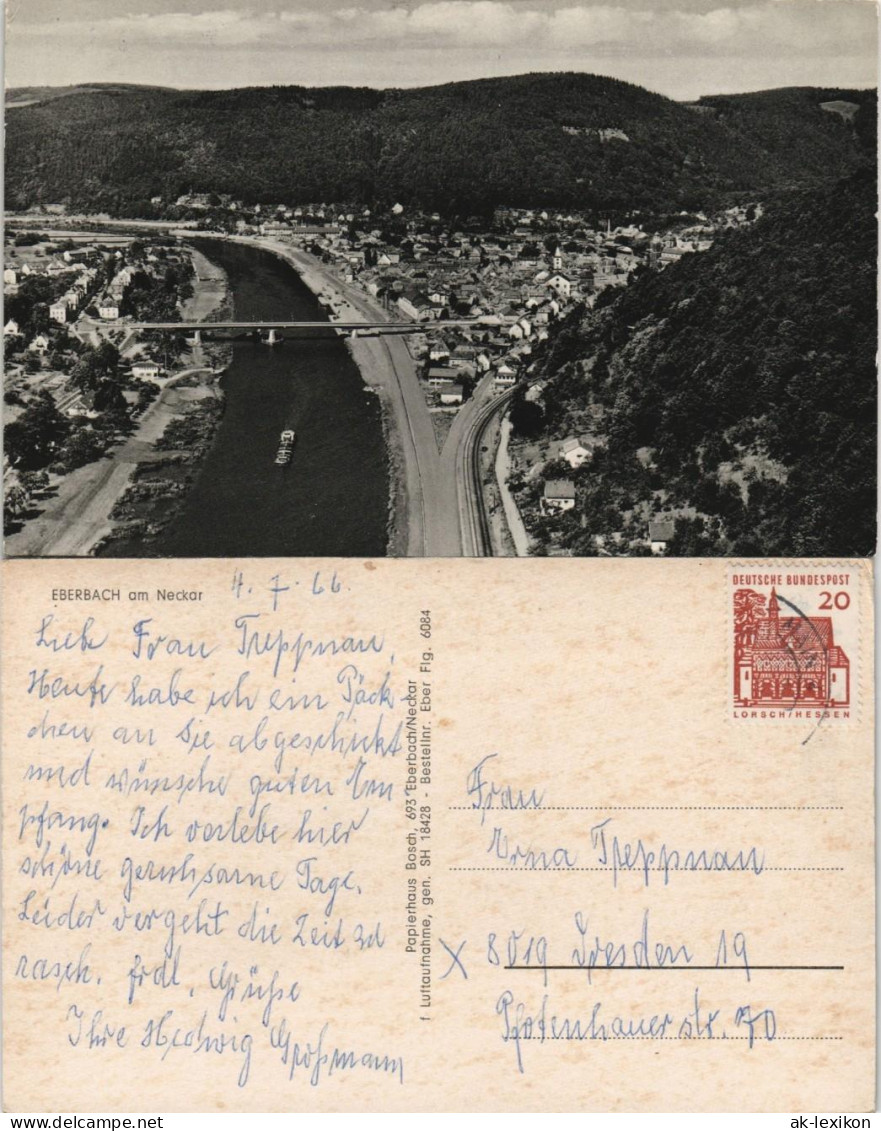 EBERBACH am Neckar
4. 7. 66.
Liebe Frau Treppnau,
Heute habe ich ein Päck-
chen an Sie abgeschickt
und wünsche guten Em
pfang. Ich verlebe hier
schöne geruhsame Tage.
Leider vergeht die Zeit zu
rasch. frdl. Grüße
Ihre Hedwig Großmann
Papierhaus Bosch, 693 Eberbach/Neckar
† Luftaufnahme, gen. SH 18428 - Bestellnr. Eber Flg. 6084
DEUTSCHE BUNDESPOST
20
LORSCH/HESSEN
Frau
Erna Treppnau
X 8019 Dresden 19
Pfotenhauerstr. 70
delcampe.net
ak-lexikon